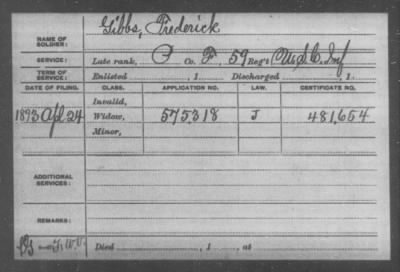 Gibbs, Frederick
NAME OF SOLDIER:
SERVICE: Late rank, P Co. F, 59 Reg't U.S.C. Inf
TERM OF SERVICE: Enlisted , 1 Discharged , 1 .
DATE OF FILING. CLASS. APPLICATION NO. LAW. CERTIFICATE NO.
Invalid,
1893 Apl 24 Widow, 575318 J 481,654
Minor,
ADDITIONAL SERVICES:
REMARKS:
Died , 1 , at